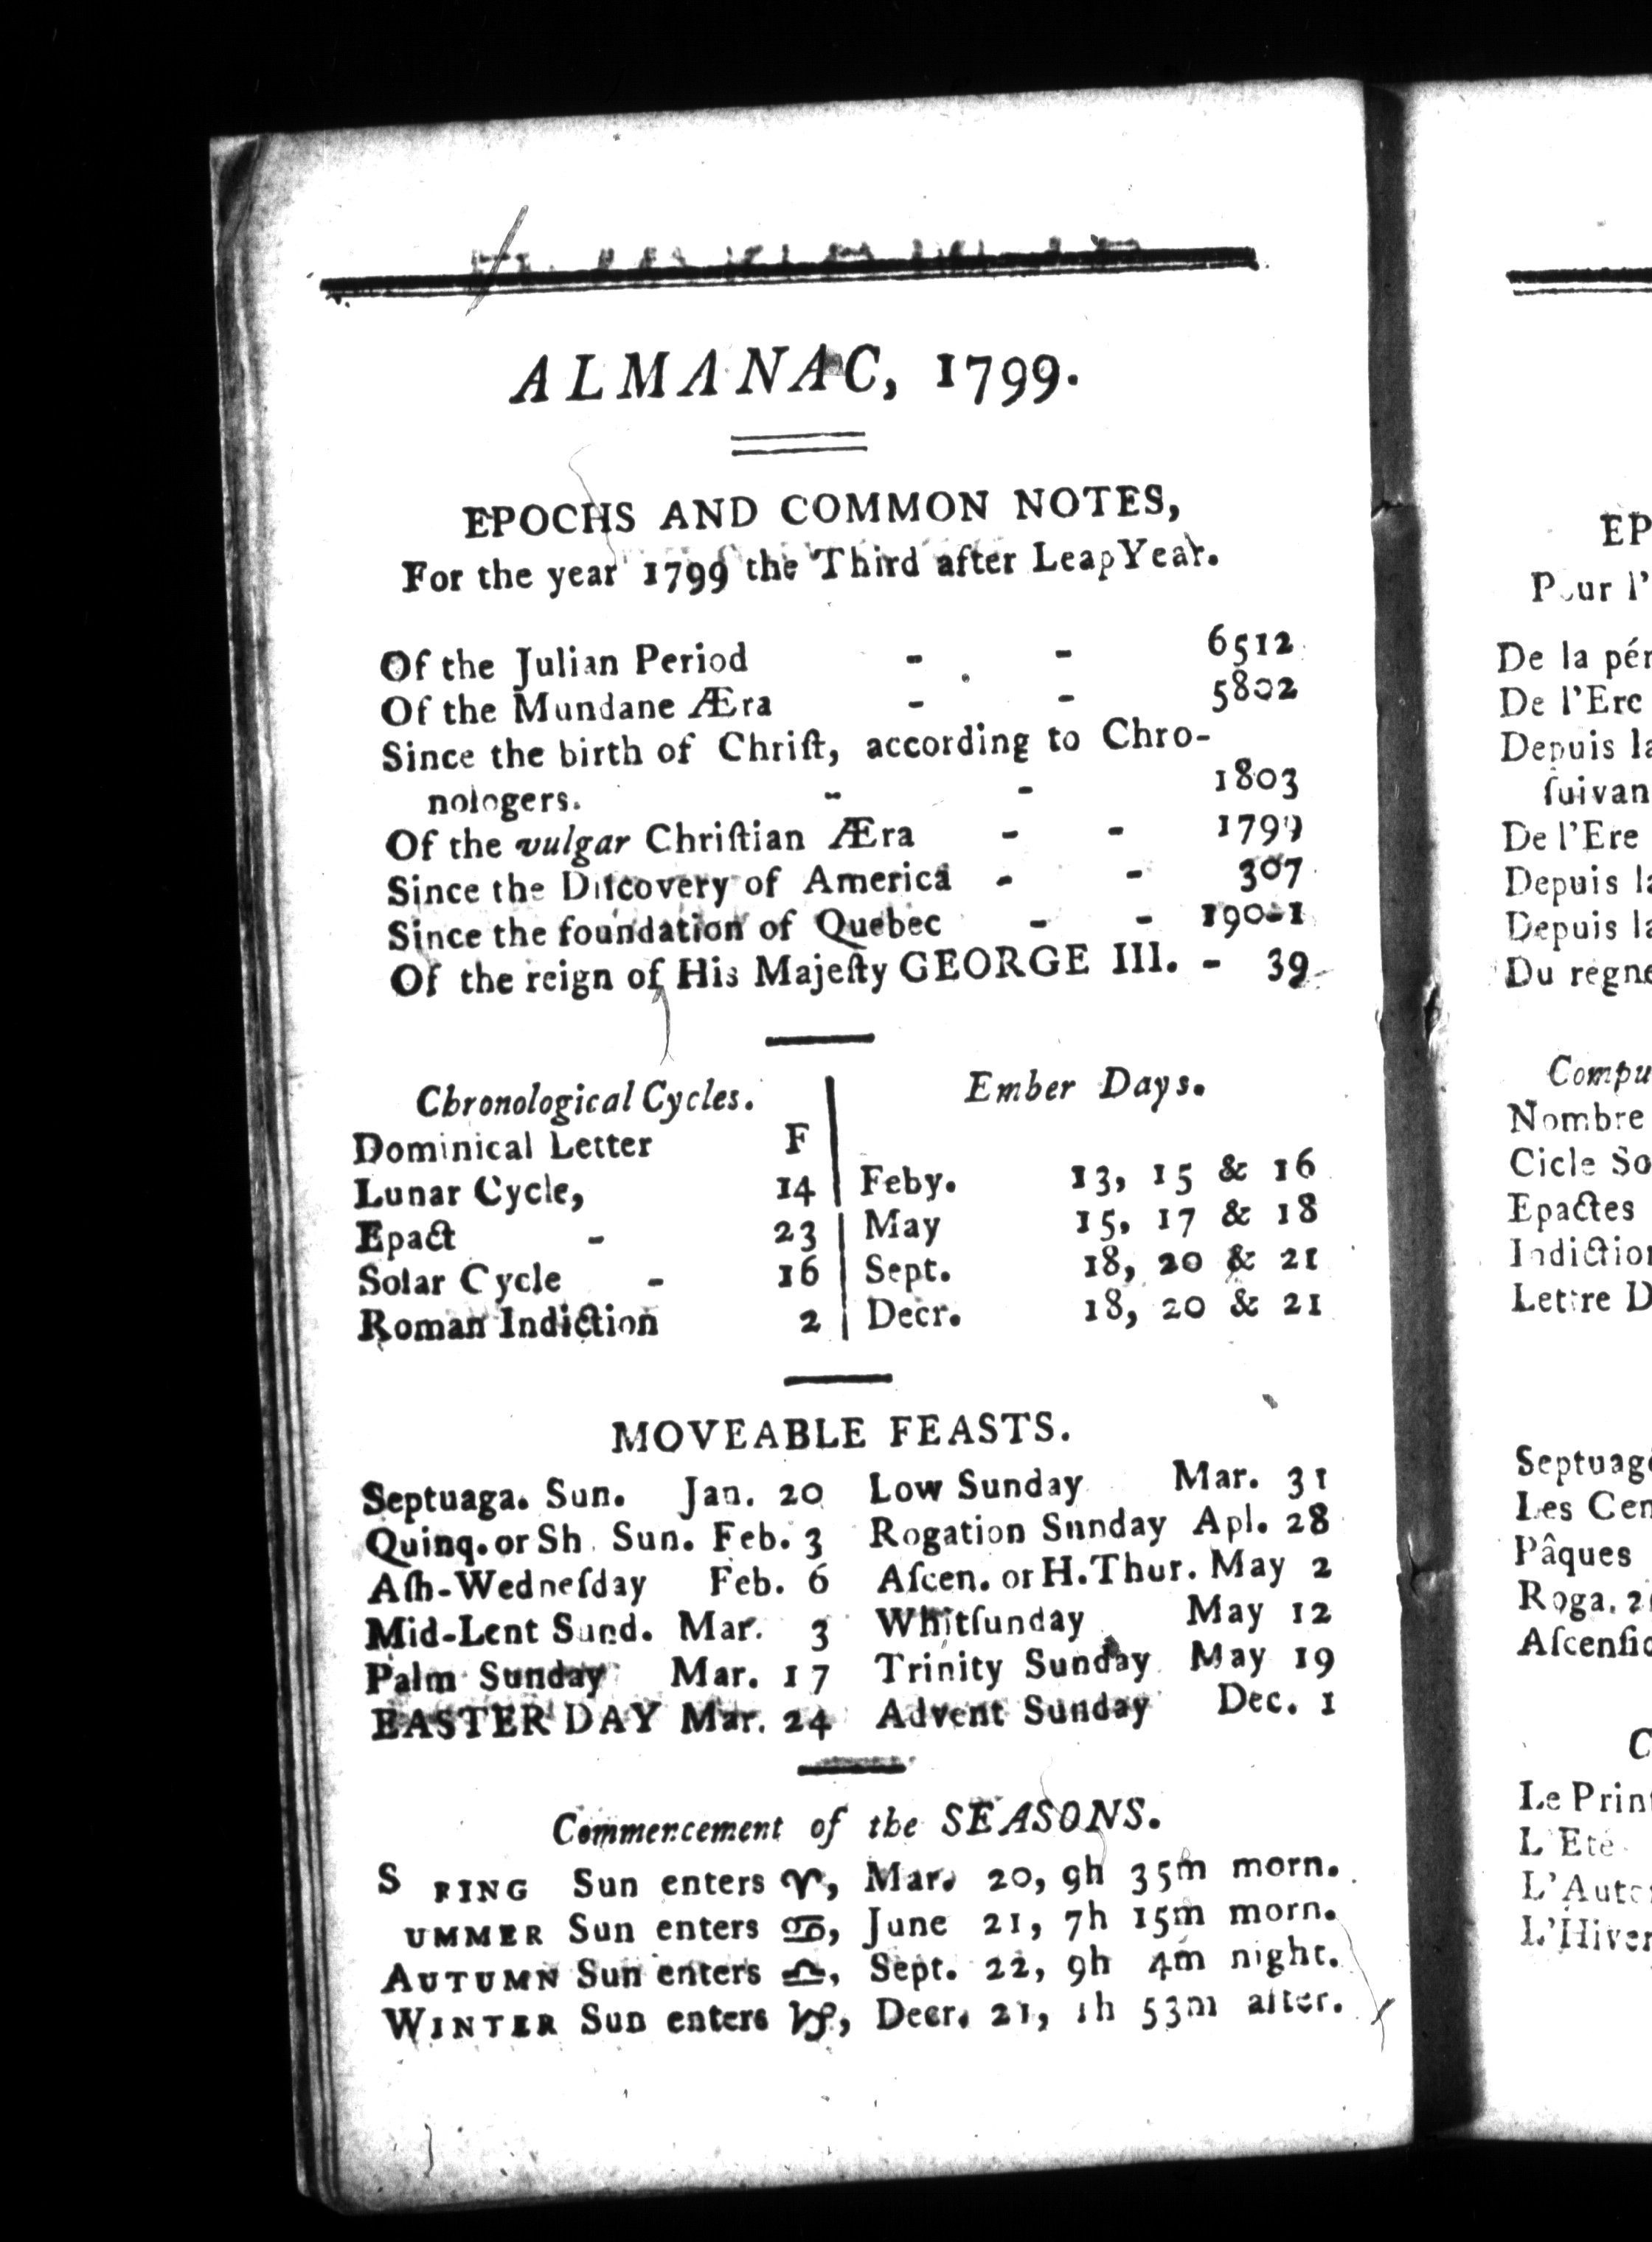 ALMANAC, 1799.
EPOCHS AND COMMON NOTES,
For the year 1799 the Third after Leap Year.
Of the Julian Period - - 6512
Of the Mundane Æra - - 5802
Since the birth of Chriſt, according to Chro-
nologers. - - 1803
Of the vulgar Chriſtian Æra - - 1799
Since the Diſcovery of America - - 307
Since the foundation of Quebec - - 190-1
Of the reign of His Majeſty GEORGE III. - 39
Chronological Cycles.
Dominical Letter F
Lunar Cycle, 14
Epact - 23
Solar Cycle - 16
Roman Indiction 2
Ember Days.
Feby. 13, 15 & 16
May 15, 17 & 18
Sept. 18, 20 & 21
Decr. 18, 20 & 21
MOVEABLE FEASTS.
Septuaga. Sun. Jan. 20
Quinq. or Sh. Sun. Feb. 3
Aſh-Wedneſday Feb. 6
Mid-Lent Sund. Mar. 3
Palm Sunday Mar. 17
EASTER DAY Mar. 24
Low Sunday Mar. 31
Rogation Sunday Apl. 28
Aſcen. or H. Thur. May 2
Whitſunday May 12
Trinity Sunday May 19
Advent Sunday Dec. 1
Commencement of the SEASONS.
S RING Sun enters ♈, Mar. 20, 9h 35m morn.
UMMER Sun enters ♋, June 21, 7h 15m morn.
AUTUMN Sun enters ♎, Sept. 22, 9h 4m night.
WINTER Sun enters ♑, Decr. 21, 1h 53m after.
EP
Pour l'
De la pér
De l'Ere
Depuis la
ſuivan
De l'Ere
Depuis la
Depuis la
Du regne
Compu
Nombre
Cicle So
Epactes
Indiction
Lettre D
Septuage
Les Cen
Pâques
Roga. 2
Aſcenſio
C
Le Prin
L'Eté
L'Auto
L'Hiver